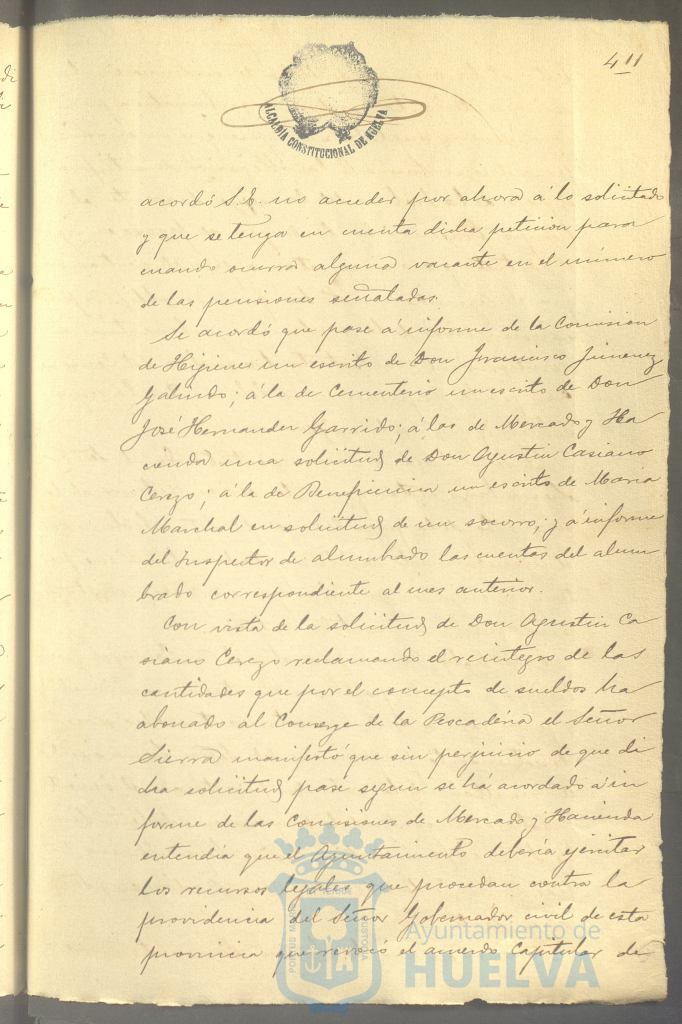 411
ALCALDIA CONSTITUCIONAL DE HUELVA
acordó S.E. no acceder por ahora á lo solicitado
y que se tenga en cuenta dicha peticion para
cuando ocurra alguna vacante en el número
de las pensiones señaladas.
Se acordó que pase á informe de la Comision
de Higiene un escrito de Don Francisco Jimenez
Galindo; á la de Cementerio un escrito de Don
José Hernandez Garrido; á las de Mercado y Ha
cienda una solicitud de Don Agustin Casiano
Cerezo; á la de Beneficencia un escrito de Maria
Marchal en solicitud de un socorro; y á informe
del Inspector de alumbrado las cuentas del alum
brado correspondiente al mes anterior.
Con vista de la solicitud de Don Agustin Ca
siano Cerezo reclamando el reintegro de las
cantidades que por el concepto de sueldos ha
abonado al Conserge de la Pescadéria el Señor
Sierra manifestó que sin perjuicio de que di
cha solicitud pase segun se há acordado á in
forme de las Comisiones de Mercado y Hacienda
entendia que el Ayuntamiento deberia ejercitar
los recursos legales que procedan contra la
providencia del Señor Gobernador civil de esta
provincia que revocó el acuerdo Capitular de
Ayuntamiento de
HUELVA